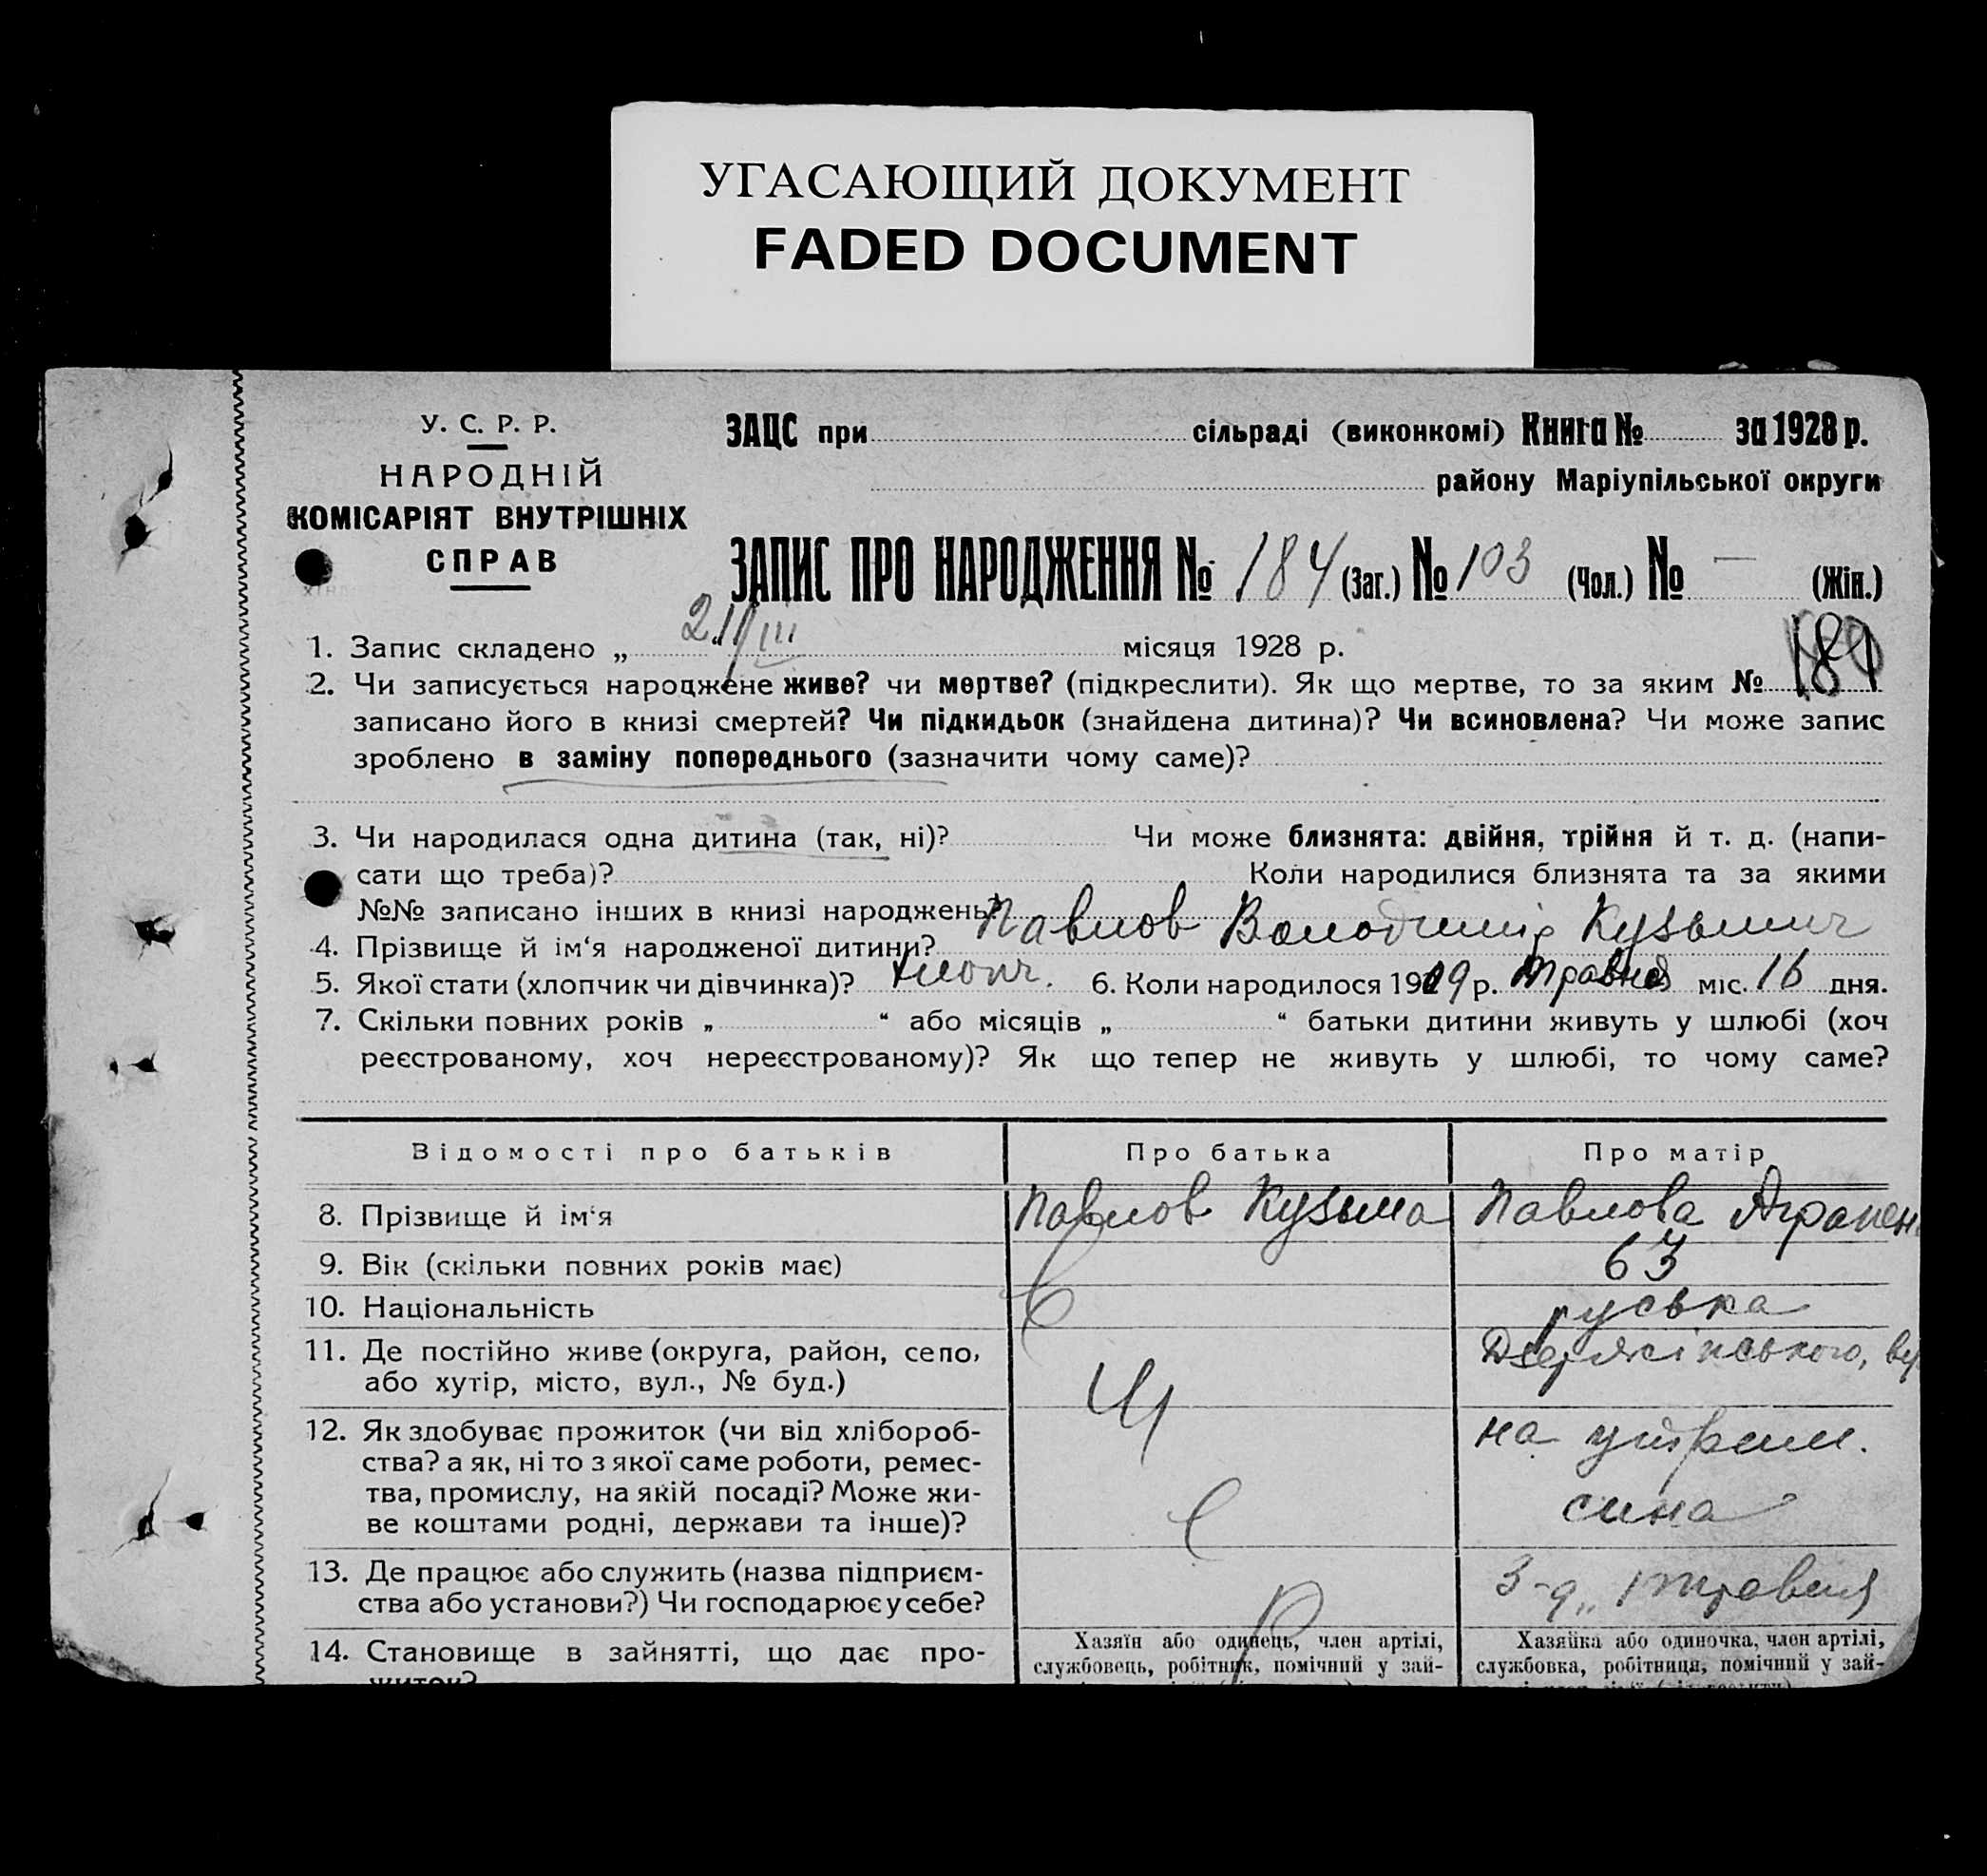 УГАСАЮЩИЙ ДОКУМЕНТ
FADED DOCUMENT
У. С. Р. Р.
НАРОДНІЙ
КОМІСАРІЯТ ВНУТРІШНІХ
СПРАВ
ЗАЦС при сільраді (виконкомі) Книга № за 1928 р.
району Маріупільської округи
ЗАПИС ПРО НАРОДЖЕННЯ № 184 (Заг.) № 103 (Чол.) № — (Жін.)
1. Запис складено „ 21/III місяця 1928 р.
2. Чи записується народжене живе? чи мертве? (підкреслити). Як що мертве, то за яким №
записано його в книзі смертей? Чи підкидьок (знайдена дитина)? Чи всиновлена? Чи може запис
зроблено в заміну попереднього (зазначити чому саме)?
3. Чи народилася одна дитина (так, ні)? Чи може близнята: двійня, трійня й т. д. (напи-
сати що треба)? Коли народилися близнята та за якими
№№ записано інших в книзі народжень?
4. Прізвище й ім‘я народженої дитини? Павлов Володимір Кузьмич
5. Якої стати (хлопчик чи дівчинка)? хлопч. 6. Коли народилося 1919 р. травня міс. 16 дня.
7. Скільки повних років „ “ або місяців „ “ батьки дитини живуть у шлюбі (хоч
реєстрованому, хоч нереєстрованому)? Як що тепер не живуть у шлюбі, то чому саме?
Відомості про батьків Про батька Про матір
8. Прізвище й ім‘я Павлов Кузьма Павлова Аграпен
9. Вік (скільки повних років має) 63
10. Національність руська
11. Де постійно живе (округа, район, село,
або хутір, місто, вул., № буд.) Дзержінського, ву
12. Як здобуває прожиток (чи від хлібороб-
ства? а як, ні то з якої саме роботи, ремес-
тва, промислу, на якій посаді? Може жи-
ве коштами родні, держави та інше)?
на утрим.
сина
13. Де працює або служить (назва підприєм-
ства або установи?) Чи господарює у себе?
З-д „1 травня
14. Становище в зайнятті, що дає про-
житок?
Хазяїн або одинець, член артілі,
службовець, робітник, помічний у зай-
Хазяйка або одиночка, член артілі,
службовка, робітниця, помічний у зай-